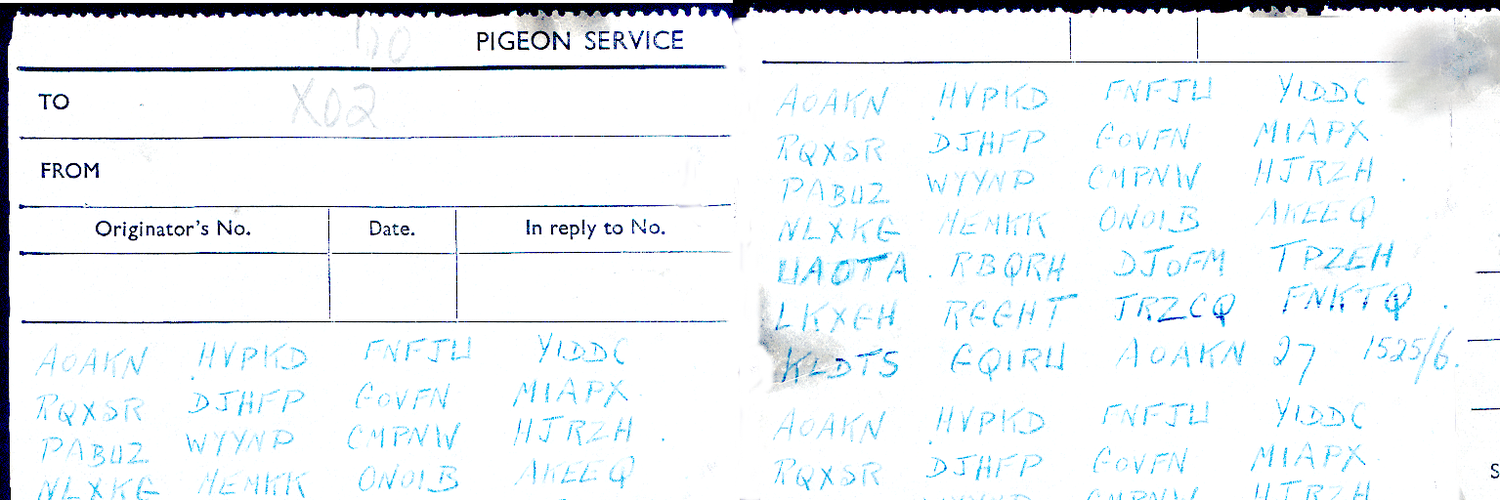 PIGEON SERVICE
TO X02
FROM
Originator's No. Date. In reply to No.
AOAKN HVPKD FNFJW YIDDC
RQXSR DJHFP GOVFN MIAPX
PABUZ WYYNP CMPNW HJRZH .
NLXKG MEMKK ONOIB AKEEQ
AOAKN HVPKD FNFJW YIDDC
RQXSR DJHFP GOVFN MIAPX
PABUZ WYYNP CMPNW HJRZH .
NLXKG MEMKK ONOIB AKEEQ
UAOTA . RBQRH DJOFM TPZEH
LKXGH RGGHT JRZCQ FNKTQ .
KLDTS GQIRW AOAKN 27 1525/6.
AOAKN HVPKD FNFJW YIDDC
RQXSR DJHFP GOVFN MIAPX
S